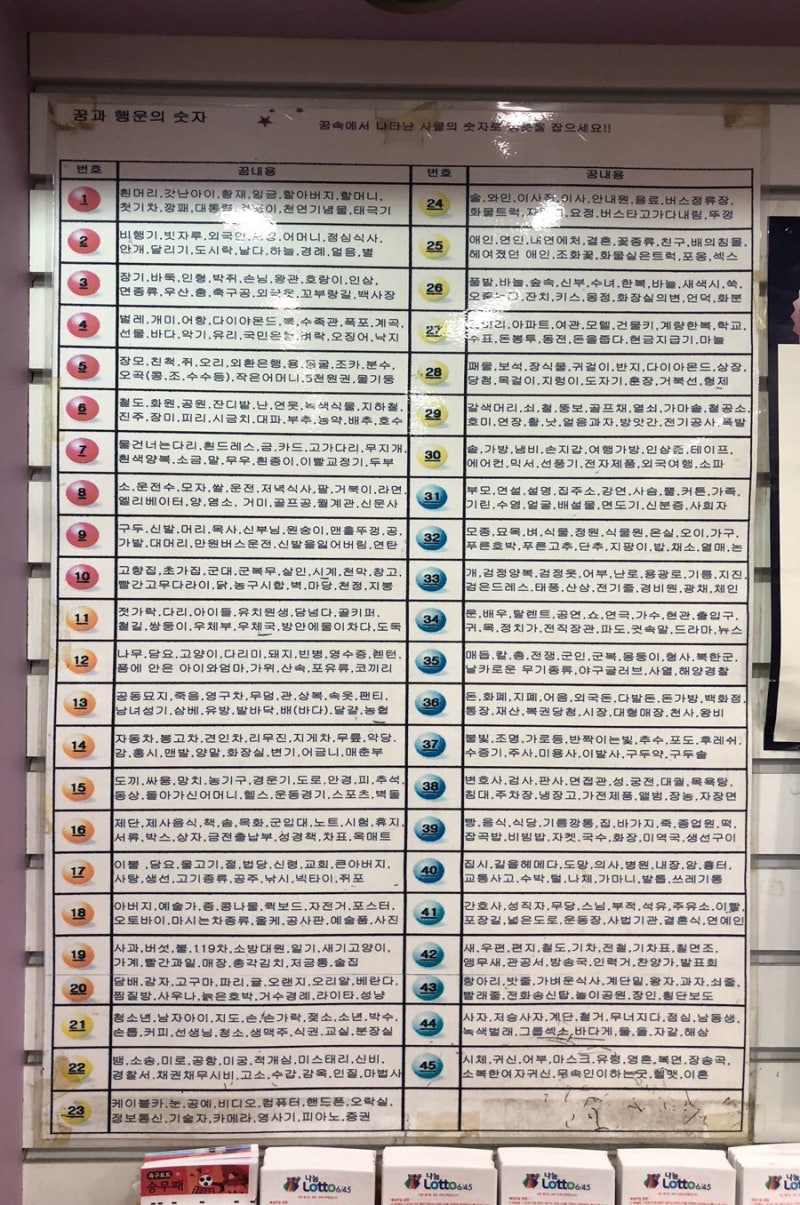 꿈과 행운의 숫자
꿈속에서 나타난 사물의 숫자로 잡으세요!!
번호 꿈내용
1
흰머리,갓난아이,횡재,임금,할아버지,할머니,
첫기차,깡패,대통령, 천연기념물,태극기
2
비행기,빗자루,외국인, 어머니,점심식사,
안개,달리기,도시락,날다,하늘,경례,얼음,별
3
장기,바둑,인형,박쥐,손님,왕관,호랑이,인삼,
면종류,우산,춤,축구공, 꼬부랑길,백사장
4
벌레,개미,어항,다이야몬드,북,수족관,폭포,계곡,
선물,바다,악기,유리,국민은행,벼락,오징어,낙지
5
장모,친척,쥐,오리,외환은행,용,동굴,조카,분수,
오곡(콩,조,수수등),작은어머니,5천원권,물기둥
6
철도,화원,공원,잔디밭,난,연못,녹색식물,지하철,
진주,장미,피리,시금치,대파,부추,농약,배추,호수
7
물건너는다리,흰드레스,금,카드,고가다리,무지개,
흰색양복,소금,말,무우,흰종이,이빨교정기,두부
8
소,운전수,모자,쌀,운전,저녁식사,팔,거북이,라면,
엘리베이터,양,염소, 거미,골프공,월계관,신문사
9
구두,신발,머리,목사,신부님,원숭이,맨홀뚜껑,공,
가발,대머리,만원버스운전,신발을잃어버림,연탄
10
고향집,초가집,군대,군복무,살인,시계,천막,창고,
빨간고무다라이,닭,농구시합,벽,마당,천정,지붕
11
젓가락,다리,아이들,유치원생,담넘다,골키퍼,
철길,쌍둥이,우체부,우체국,방안에물이차다,도둑
12
나무,담요,고양이,다리미,돼지,빈병,영수증,렌턴,
품에 안은 아이와엄마,가위,산속,포유류,코끼리
13
공동묘지,죽음,영구차,무덤,관,상복,속옷,팬티,
남녀성기,삼베,유방,발바닥,배(바다),달걀,농협
14
자동차,봉고차,견인차,리무진,지게차,무릎,악당,
감,홍시,맨발,양말,화장실,변기,어금니,매춘부
15
도끼,싸움,망치,농기구,경운기,도로,안경,피,추석,
동상,돌아가신어머니,헬스,운동경기,스포츠,벽돌
16
제단,제사음식,책,송,목화,군입대,노트,시험,휴지,
서류,박스,상자,금전출납부,성경책,차표,옥매트
17
이불 ,담요,물고기,절,법당,신령,교회,큰아버지,
사탕,생선,고기종류,공주,낚시,넥타이,쥐포
18
아버지,예술가,종,콩나물,퀵보드,자전거,포스터,
오토바이,마시는차종류,올케,공사판,예술품,사진
19
사과,버섯,불,119차,소방대원,일기,새기고양이,
가게,빨간과일,매장,총각김치,저금통,술집
20
담배,감자,고구마,파리,귤,오랜지,오리알,베란다,
찜질방,사우나,늙은호박,거수경례,라이타,성냥
21
청소년,남자아이,지도,손,손가락,젖소,소년,박수,
손톱,커피,선생님,청소,생맥주,식권,교실,분장실
22
뱀,소송,미로,공항,미궁,적개심,미스테리,신비,
경찰서,채권채무시비,고소,수갑,감옥,인질,마법사
23
케이블카,눈,공예,비디오,컴퓨터,핸드폰,오락실,
정보통신,기술자,카메라,영사기,피아노,증권
번호 꿈내용
24
술,와인,이사장,이사,안내원,음료,버스정류장,
화물트럭, 요정,버스타고가다내림,뚜껑
25
애인,연인,내연에처,결혼,꽃종류,친구,배의침몰,
헤여졌던 애인,조화꽃,화물실은트럭,포옹,섹스
26
풀밭,바늘,숲속,신부,수녀,한복,바늘,새색시,쑥,
잔치,키스,몽정,화장실의변,언덕,화분
27
아파트,여관,모텔,건물키,계량한복,학교,
수표,돈봉투,동전,돈을줍다,현금지급기,마늘
28
패물,보석,장식물,귀걸이,반지,다이아몬드,상장,
당첨,목걸이,지렁이,도자기,훈장,거북선,형제
29
갈색머리,쇠,철,똥보,골프채,열쇠,가마솥,철공소,
호미,연장,활,낫,얼음과자,방앗간,전기공사,폭발
30
솥,가방,냄비,손지갑,여행가방,인삼즙,테이프,
에어컨,믹서,선풍기,전자제품,외국여행,소파
31
부모,연설,설명,집주소,강연,사슴,뿔,커튼,가족,
기린,수염,얼굴,배설물,도면,신분증,사회자
32
모종,묘목,벼,식물,정원,식물원,온실,오이,가구,
푸른호박,푸른고추,단추,지팡이,밥,채소,열매,논
33
개,검정양복,검정옷,어부,난로,용광로,기름,지진,
검은드레스,태풍,산삼,전기줄,경비원,광채,체인
34
문,배우,탈렌트,공연,쇼,연극,가수,현관,출입구,
귀,목,정치가,전직장관,파도,귓속말,드라마,뉴스
35
매듭,칼,총,전쟁,군인,군복,몽둥이,형사,북한군,
날카로운 무기종류,야구글러브,사열,해양경찰
36
돈,화폐,지폐,어음,외국돈,다발돈,돈가방,백화점,
통장,재산,복권당첨,시장,대형매장,천사,왕비
37
불빛,조명,가로등,반짝이는빛,추수,포도,후레쉬,
수증기,주사,미용사,이발사,구두약,구두솔
38
변호사,검사,판사,면접관,성,궁전,대궐,목욕탕,
침대,주차장,냉장고,가전제품,앨범,장농,자장면
39
빵,음식,식당,기름깡통,집,바가지,죽,종업원,떡,
잡곡밥,비빔밥,자켓,국수,화장,미역국,생선구이
40
집시,길을헤메다,도망,의사,병원,내장,암,흉터,
교통사고,수박,털,나체,가마니,발톱,쓰레기통
41
간호사,성직자,무당,스님,부적,석유,주유소,이빨,
포장길,넓은도로,운동장,사법기관,결혼식,연예인
42
새,우편,편지,철도,기차,전철,기차표,칠면조,
앵무새,관공서,방송국,인력거,찬양가,발표회
43
항아리,밧줄,가벼운식사,계단밑,왕자,과자,쇠줄,
빨래줄,전화송신탑,놀이공원,장인,횡단보도
44
사자,저승사자,계단,철거,무너지다,점심,남동생,
녹색벌래,그룹섹스,바다게,물,돌,자갈,해삼
45
시체,귀신,어부,마스크,유령,영혼,복면,장송곡,
소복한여자귀신,무속인이하는굿,헬멧,이혼
축구토토
승무패
나눔
Lotto 6/45
나눔
Lotto 6/45
나눔
Lotto 6/45
나눔
Lotto 6/45
나눔